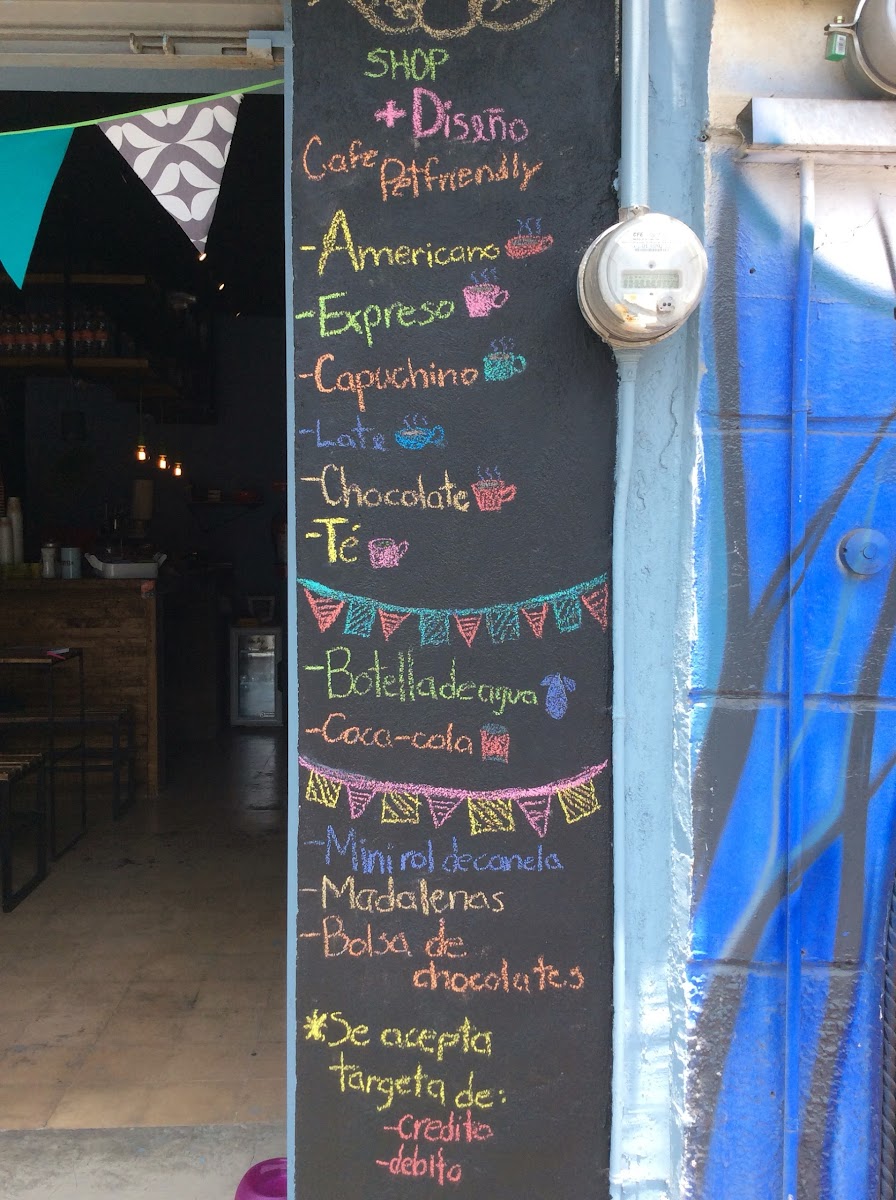 SHOP
+ Diseño
Cafe
Petfriendly
-Americano
-Expreso
-Capuchino
-Late
-Chocolate
-Té
-Botella de agua
-Coca-cola
-Mini rol de canela
-Madalenas
-Bolsa de
chocolates
*Se acepta
targeta de:
-credito
-debito